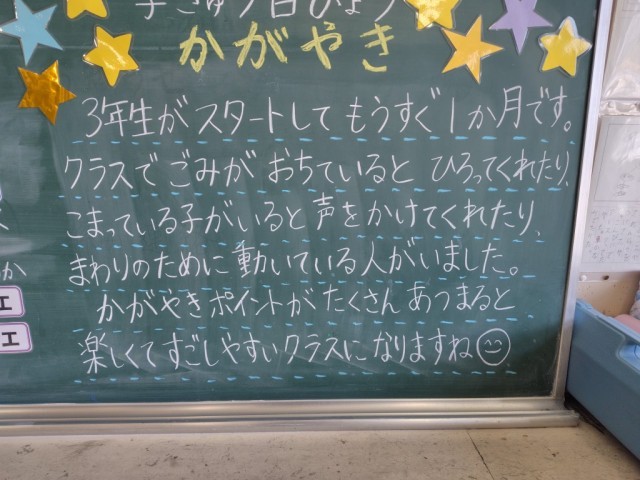 学きゅう目ひょう
かがやき
3年生がスタートしてもうすぐ1か月です。
クラスでごみがおちているとひろってくれたり、
こまっている子がいると声をかけてくれたり、
まわりのために動いている人がいました。
かがやきポイントがたくさんあつまると
楽しくてすごしやすいクラスになりますね
か
工
工